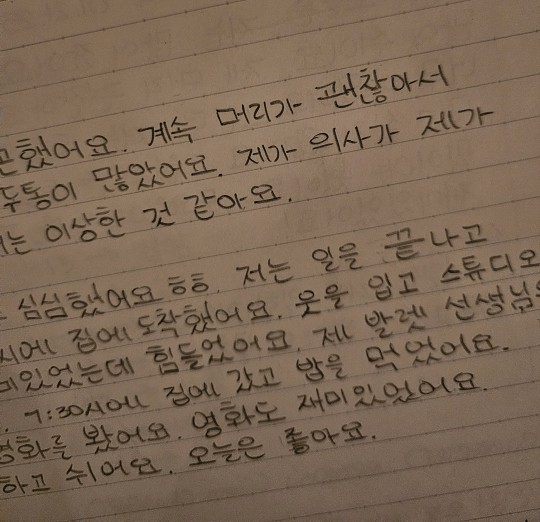 곤했어요. 계속 머리가 괜찮아서
두통이 많았어요. 제가 의사가 제가
는 이상한 것 같아요.
심심했어요 흐흠. 저는 일을 끝나고
시에 집에 도착했어요. 옷을 입고 스튜디오
미있었는데 힘들었어요. 제 발렛 선생님
. 7:30시에 집에 갔고 밥을 먹었어요.
영화를 봤어요. 영화도 재미있었어요.
하고 쉬어요. 오늘은 좋아요.